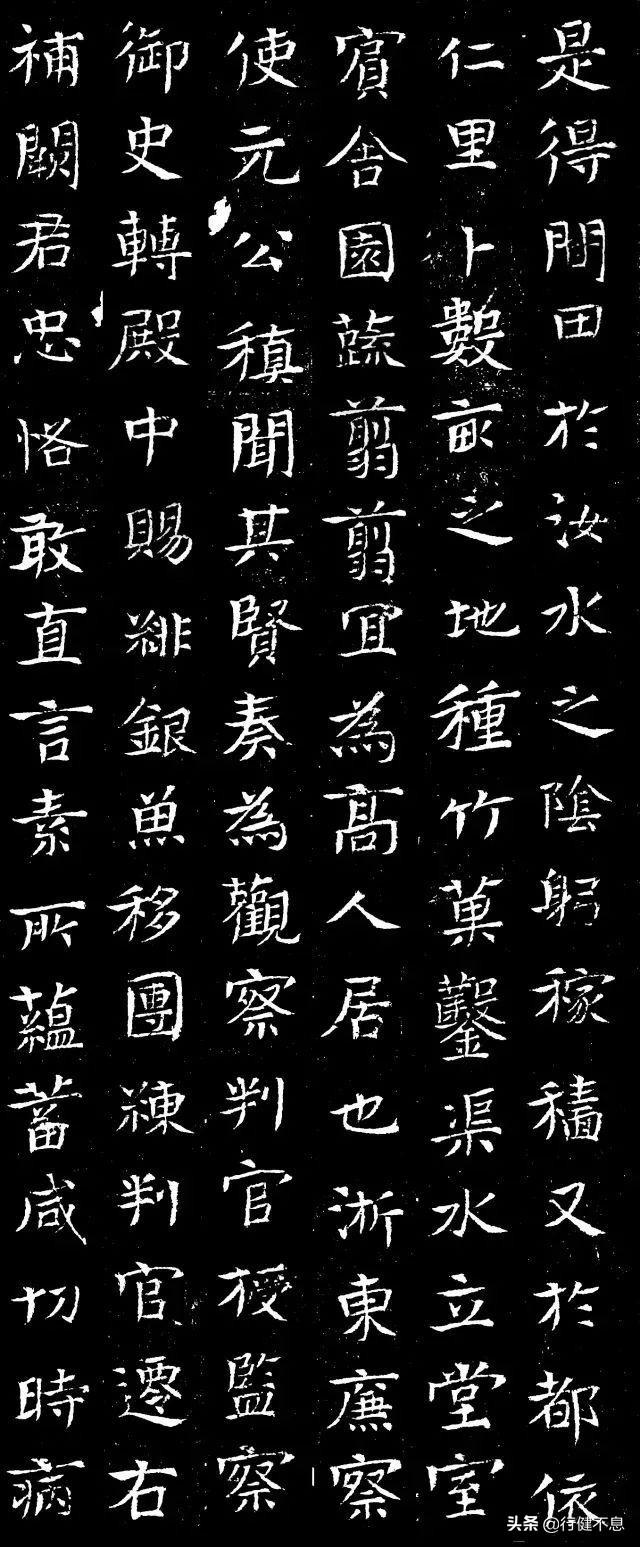 是得閒田於汝水之陰躬稼穡又於都依
仁里卜數畝之地種竹菓鑿渠水立堂室
賓舍園蔬翦翦宜為高人居也浙東廉察
使元公稹聞其賢奏為觀察判官授監察
御史轉殿中賜緋銀魚移團練判官遷右
補闕君忠恪敢直言素所蘊蓄咸切時病
头条 @行健不息